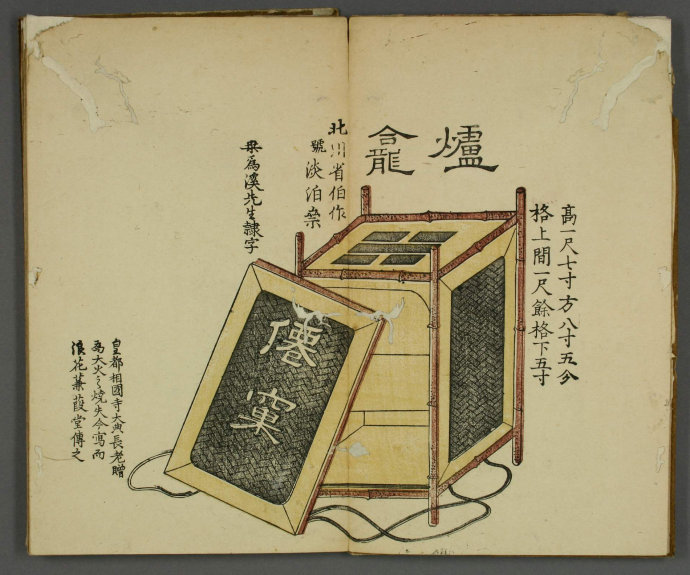 爐龕
高一尺七寸方八寸五分
格上間一尺餘格下五寸
北川省伯作
號淡泊
為溪先生隸字
僊窠
皇都相國寺大典長老贈
為大火燒失今寫而
浪花蒹葭堂傳之